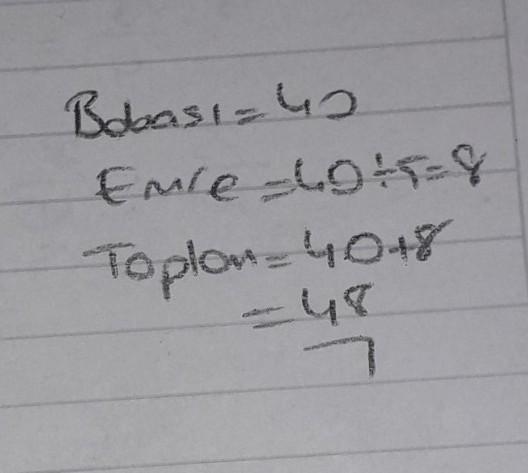 Babası = 40
Emre = 40÷5=8
Toplam = 40+8
= 48